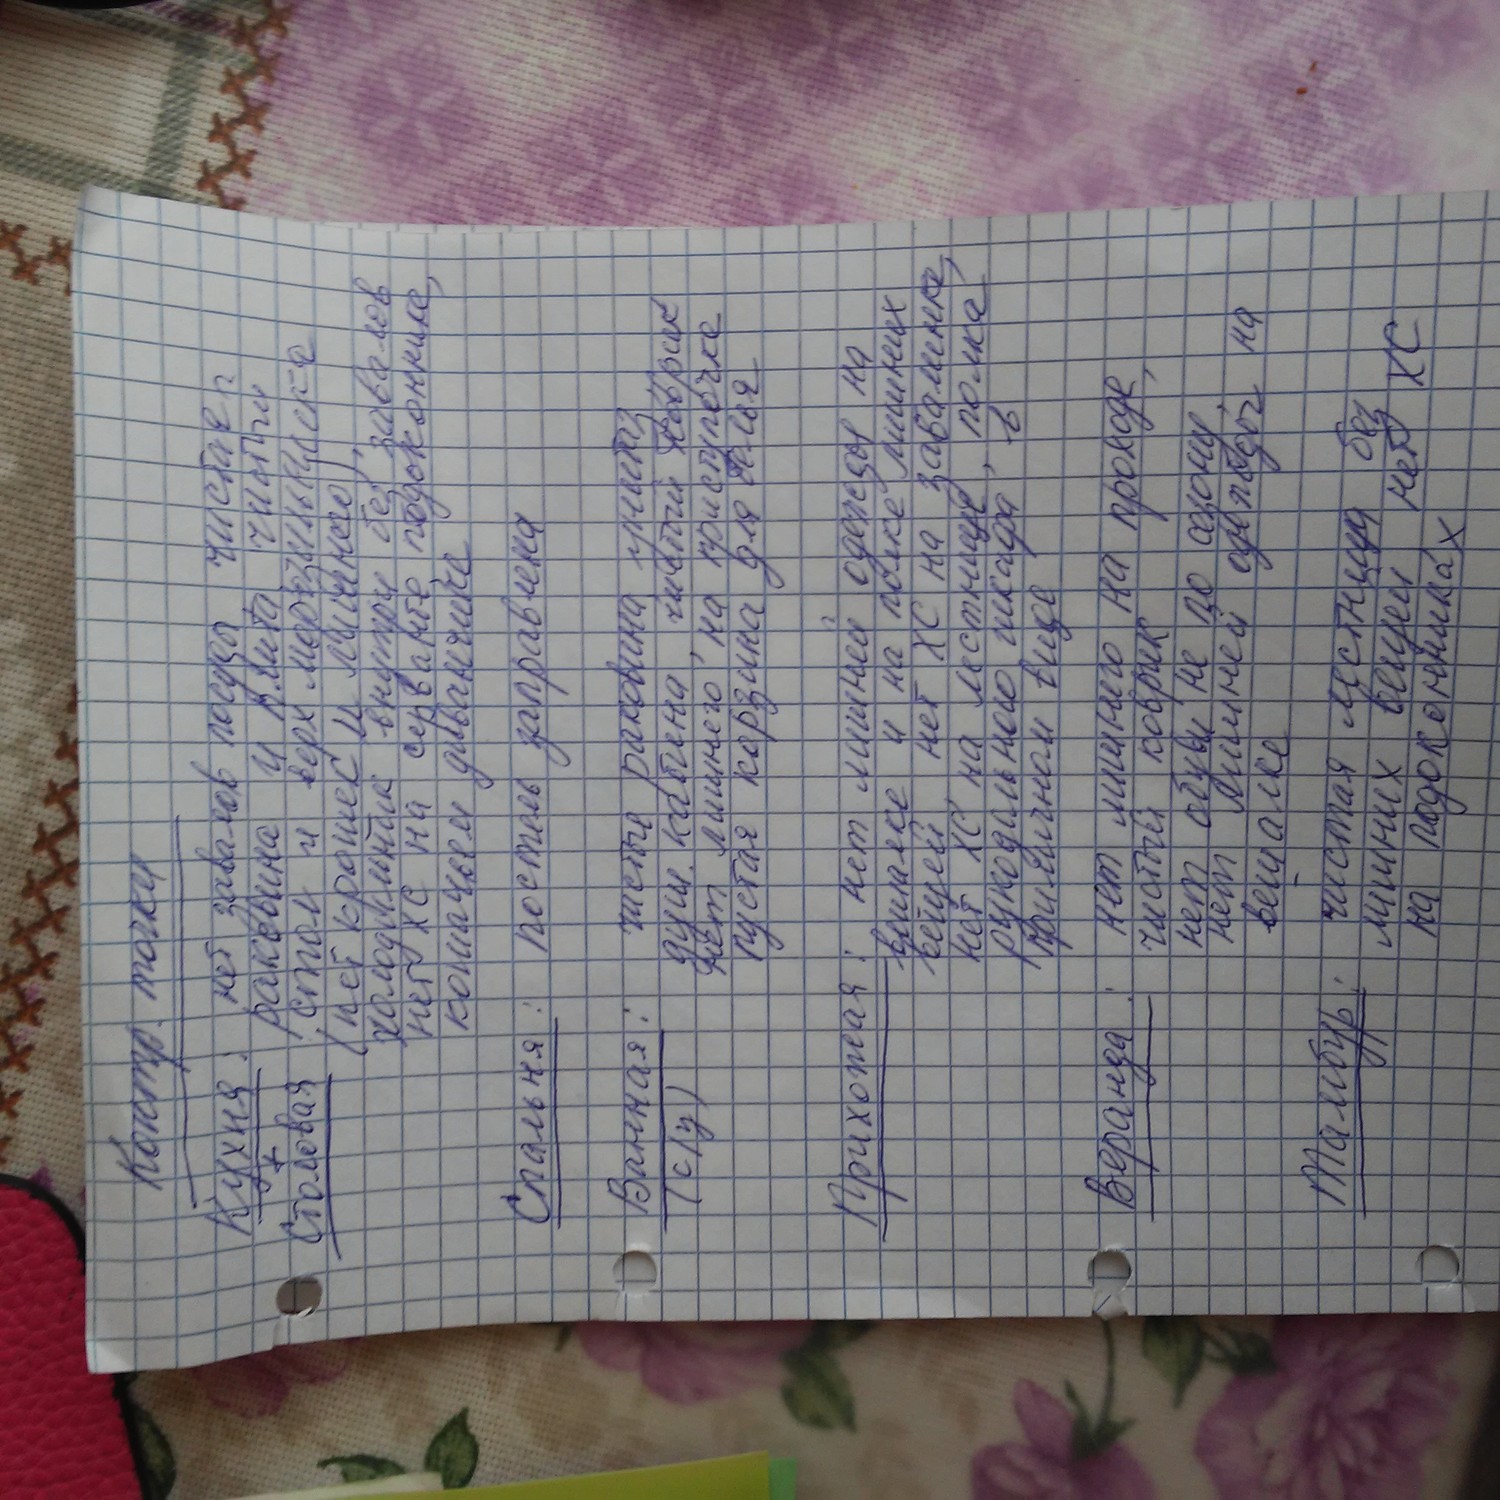 Контр. точки
Кухня: нет завалов посуды, чистая
+ раковина и плита, чистый
Столовая стол и верх морозильника
(нет крошек и лишнего),
холодильник внутри без завалов
нет ХС на серванте, подоконнике,
кошачьем диванчике
Спальня: постель заправлена
Ванная: чистые раковина, унитаз,
(с/у) душ. кабина, чистый коврик
нет лишнего на приступочке
пустая корзина для белья
Прихожая: нет лишней одежды на
вешалке и на полке лишних
вещей, нет ХС на заваленке,
нет ХС на лестнице, полка
рукодельного шкафа, в
приличном виде
Веранда: нет лишнего на проходе,
чистый коврик
нет обуви не по сезону,
нет лишней одежды на
вешалке
Тамбур: чистая лестница без
лишних вещей, нет ХС
на подоконниках